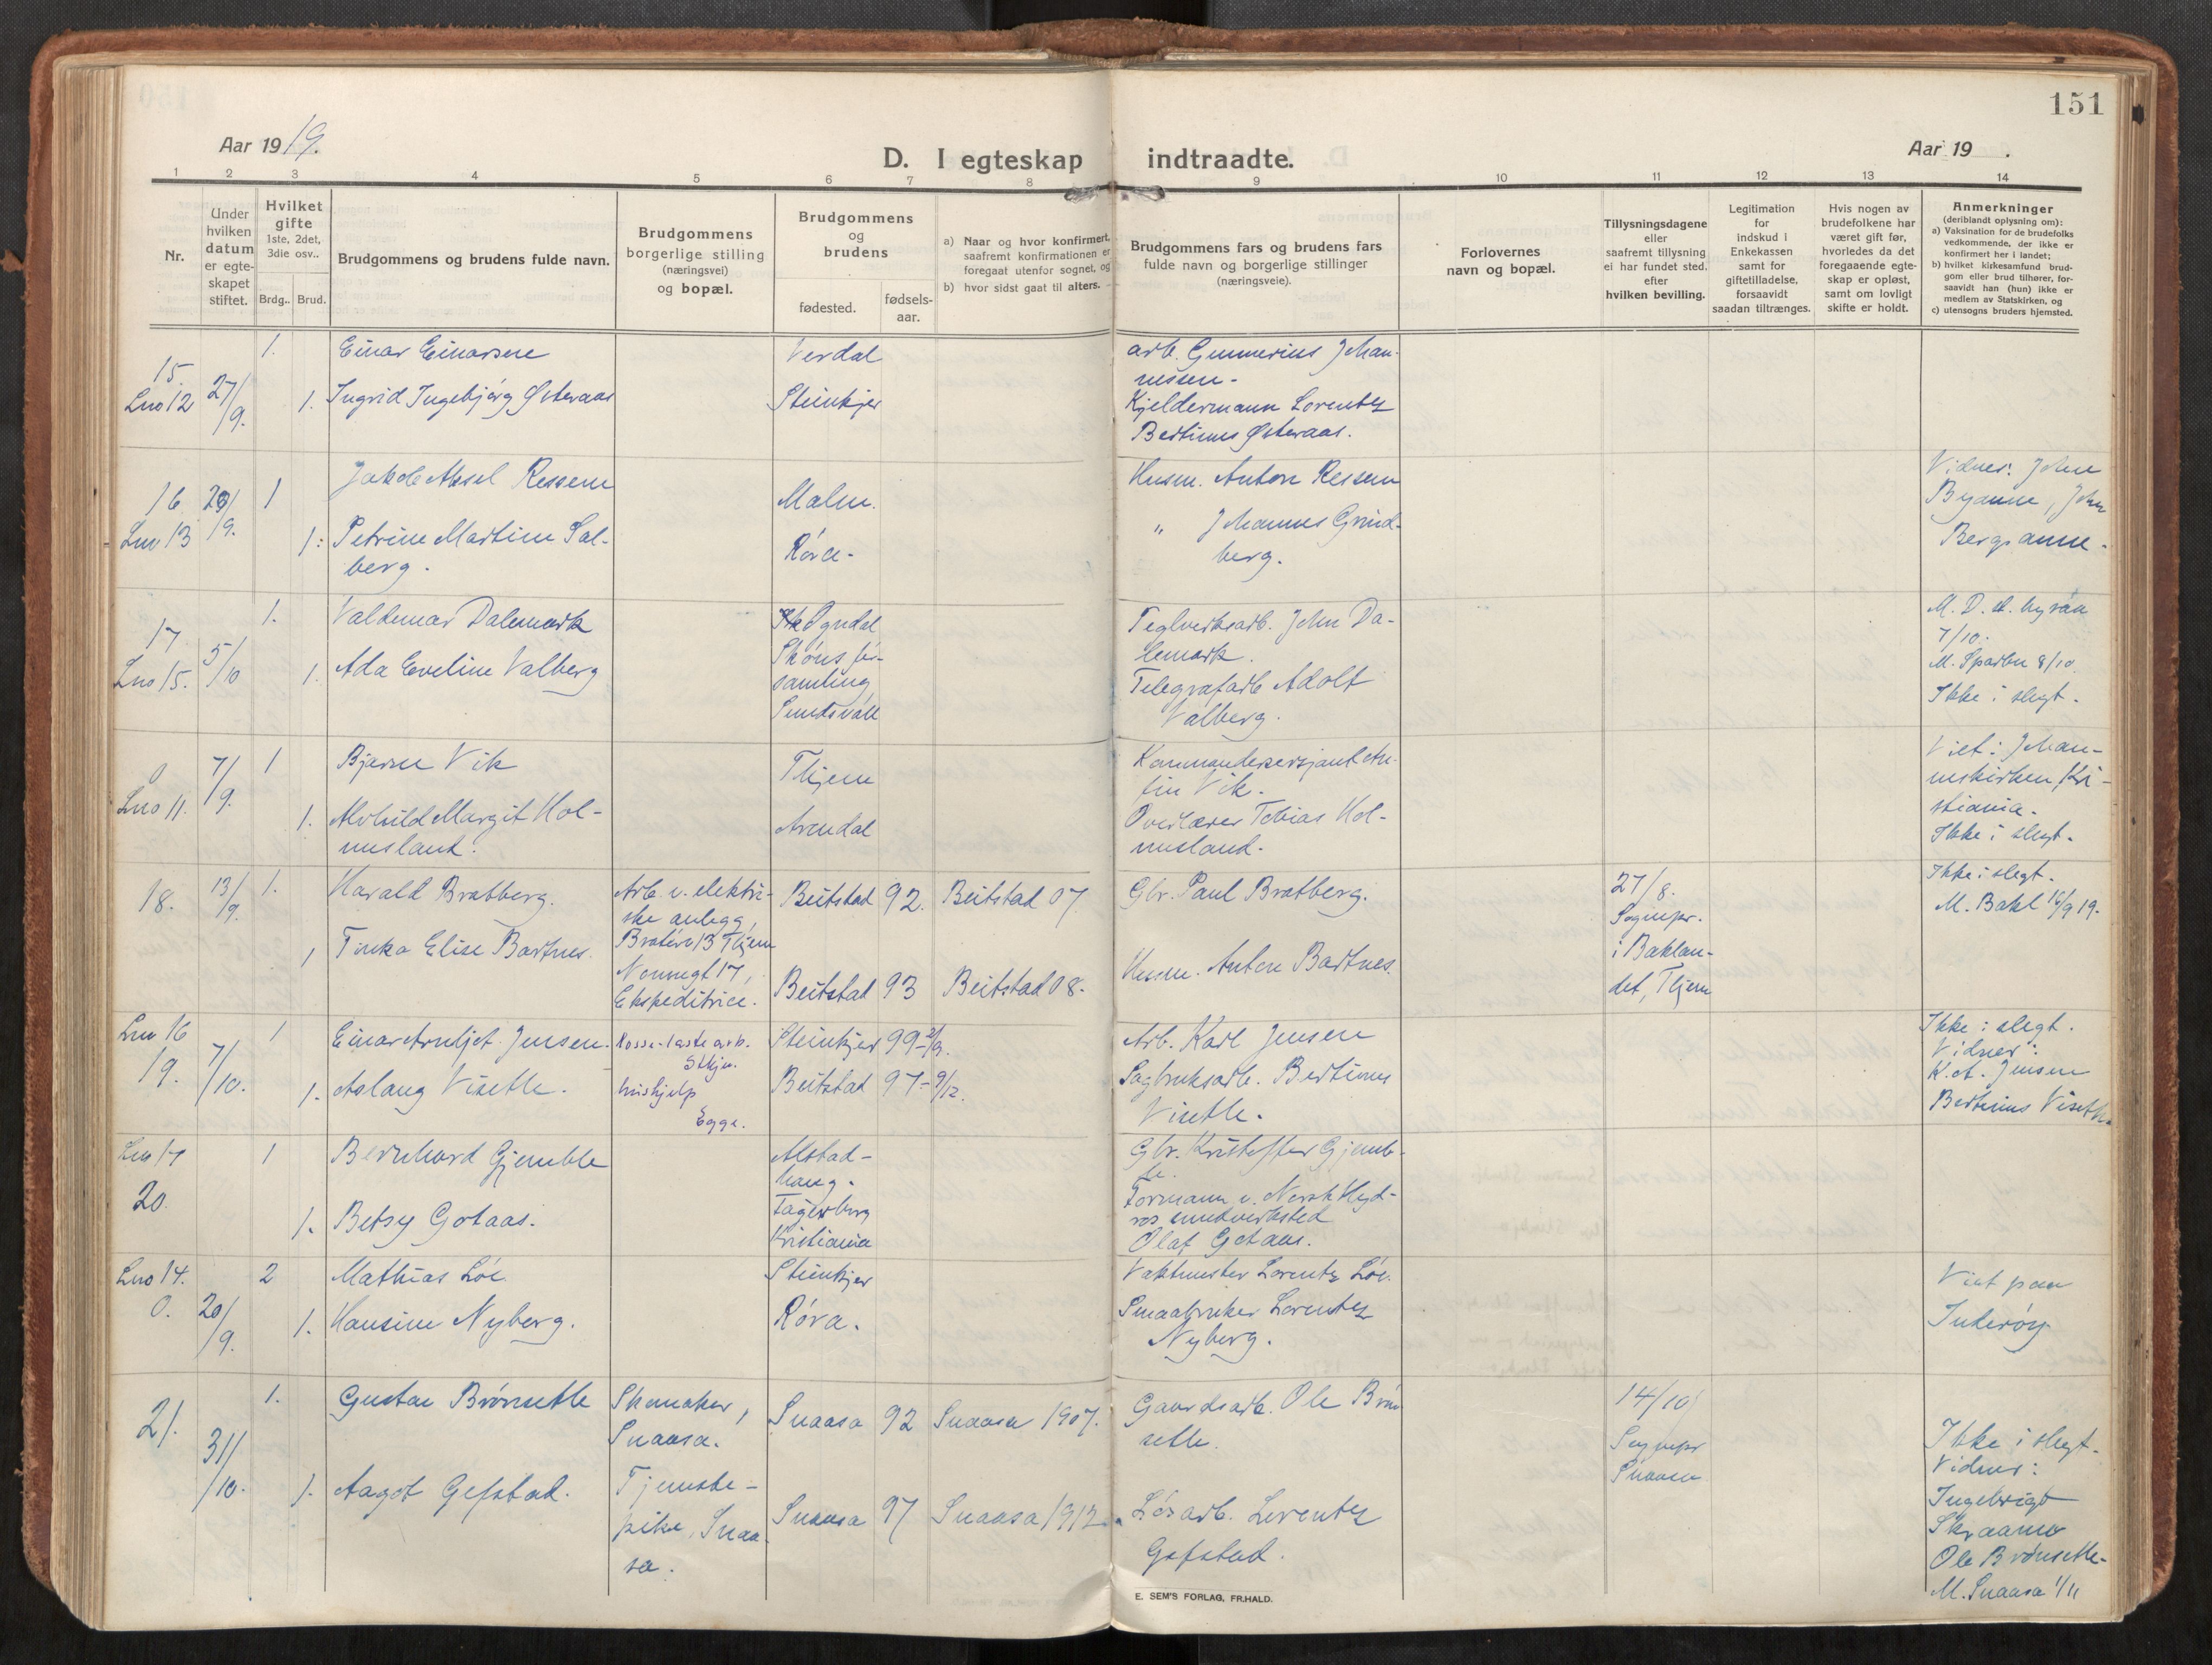 151
Aar 1919.
D. I egteskap indtraadte.
Aar 19 .
1 2 3 4 5 6 7 8 9 10 11 12 13 14
Nr.
Under
hvilken
datum
er egte-
skapet
stiftet.
Hvilket
gifte
1ste, 2det,
3die osv..
Brdg.. Brud.
Brudgommens og brudens fulde navn.
Brudgommens
borgerlige stilling
(næringsvei)
og bopæl.
Brudgommens
og
brudens
fødested.
fødsels-
aar.
a) Naar og hvor konfirmert,
saafremt konfirmationen er
foregaat utenfor sognet, og
b) hvor sidst gaat til alters.
Brudgommens fars og brudens fars
fulde navn og borgerlige stillinger
(næringsveie).
Forlovernes
navn og bopæl.
Tillysningsdagene
eller
saafremt tillysning
ei har fundet sted,
efter
hvilken bevilling.
Legitimation
for
indskud i
Enkekassen
samt for
giftetilladelse,
forsaavidt
saadan tiltrænges.
Hvis nogen av
brudefolkene har
været gift før,
hvorledes da det
foregaaende egte-
skap er opløst,
samt om lovligt
skifte er holdt.
Anmerkninger
(deriblandt oplysning om):
a) Vaksination for de brudefolks
vedkommende, der ikke er
konfirmert her i landet;
b) hvilket kirkesamfund brud-
gom eller brud tilhører, for-
saavidt han (hun) ikke er
medlem av Statskirken, og
c) utensogns bruders hjemsted.
15.
Lno 12
27/9.
1.
Einar Einarsen
Verdal
arb. Gunnerius Johan-
nessen-
1. Ingrid Ingebjørg Østeraas
Steinkjer
Kjeldermann Lorentz
Bertinus Østeraas.
16
Lno 13
29/9.
1
Jakob Aksel Ressem
Malm.
Husm. Anton Ressem
1. Petrine Martine Sal-
berg.
Røra-
" Johannes Grind-
berg.
Vidner: John
Byanne, John
Bergsanne.
17
Lno 15.
5/10
1.
Valdemar Dalemark
Ogndal
Teglverksarb. John Da-
lemark.
1. Ada Eveline Valberg
Skøns för-
samling,
Sundsvall
Telegrafarb Adolf
Valberg.
7/10.
M. Sparbu 8/10.
Ikke i slegt.
0
Lno 11.
7/9.
1
Bjarne Vik
Thjem
Kommandersersjant An-
fin Vik.
1. Alvhild Margit Hol-
mesland.
Arendal
Overlærer Tobias Hol-
mesland.
Viet i Johan-
neskirken, Kri-
stiania.
Ikke i slegt.
18.
13/9.
1.
Harald Bratberg.
Arb. v. elektri-
ske anlegg,
Bratøra 13 Thjem
Beitstad 92. Beitstad 07.
Gbr. Paul Bratberg.
27/8.
Sognepr.
i Baklan-
det, Thjem
Ikke i slegt.
M. Bakl 16/9 19.
1 Tinka Elise Bartnes.
Nonnegt 17,
Ekspeditrice.
Beitstad 93 Beitstad 08.
Husm. Anton Bartnes.
Lno 16
19.
7/10.
1
Einar Arnljot Jensen.
Losse-lastearb.
Stkjer.
Steinkjer 99
Arb. Karl Jensen
1. Aslaug Visetle.
hushjelp
Egge.
Beitstad 97 - 9/12.
Sagbruksarb. Bertinus
Visetle.
Ikke i slegt.
Vidner:
K. A. Jensen
Bertinus Visetle.
Lno 17
20.
1
Bernhard Gjemble
Alstad-
haug.
Gbr. Kristoffer Gjemb-
le.
1. Betsy Gotaas.
Fagerborg
Kristiania
Formann v. Norsk Hyd-
ros smedverksted
Olaf Gotaas.
Lno 14.
0.
20/9.
2
Mathias Løe.
Steinkjer
Vaktmester Lorentz Løe.
1. Hansine Nyberg.
Røra.
Smaabruker Lorentz
Nyberg.
Viet paa
Inderøy
21.
31/10.
1.
Gustav Brønsetle
Skomaker,
Snaasa.
Snaasa 92 Snaasa 1907.
Gaardsarb. Ole Brøn
setle.
14/10
Sognepr
Snaasa
1. Aagot Gefstad.
Tjeneste-
pike, Snaa-
sa.
Snaasa 97 Snaasa 1912.
Løsarb. Lorentz
Gefstad.
Ikke i slegt.
Vidner:
Ingebrigt
Skraamo
Ole Brønsetle-
M. Snaasa 1/11
E. SEM'S FORLAG, FR.HALD.